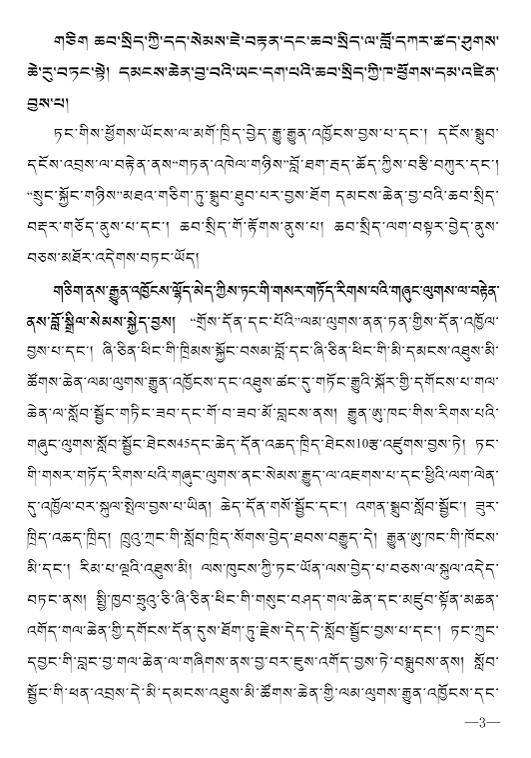 གཅིག ཆབ་སྲིད་ཀྱི་དད་སེམས་ཇེ་བརྟན་དང་ཆབ་སྲིད་ལ་བློ་དཀར་ཚད་ཤུགས་
ཆེ་རུ་བཏང་སྟེ། དམངས་ཆེན་བྱ་བའི་ཡང་དག་པའི་ཆབ་སྲིད་ཀྱི་ཁ་ཕྱོགས་དམ་འཛིན་
བྱས་པ།
ཏང་གིས་ཕྱོགས་ཡོངས་ལ་མགོ་ཁྲིད་བྱེད་རྒྱུ་རྒྱུན་འཁྱོངས་བྱས་པ་དང་། དངོས་སྒྲུབ་
དངོས་འབྲས་ལ་བརྟེན་ནས“གཏན་འཁེལ་གཉིས”བློ་ཐག་རད་ཆོད་ཀྱིས་བརྩི་བཀུར་དང་།
“སྲུང་སྐྱོང་གཉིས”མཐའ་གཅིག་ཏུ་སྒྲུབ་ཐུབ་པར་བྱས་ཐོག དམངས་ཆེན་བྱ་བའི་ཆབ་སྲིད་
བརྡར་གཅོད་ནུས་པ་དང་། ཆབ་སྲིད་གོ་རྟོགས་ནུས་པ། ཆབ་སྲིད་ལག་བསྟར་བྱེད་ནུས་
བཅས་མཐོར་འདེགས་བཏང་ཡོད།
གཅིག་ནས་རྒྱུན་འཁྱོངས་ལྷོད་མེད་ཀྱིས་ཏང་གི་གསར་གཏོད་རིགས་པའི་གཞུང་ལུགས་ལ་བརྟེན་
ནས་བློ་སྒྲིལ་སེམས་སྐྱེད་བྱས། “གྲོས་དོན་དང་པོའི”ལམ་ལུགས་ནན་ཏན་གྱིས་དོན་འཁྱོལ་
བྱས་པ་དང་། ཞི་ཅིན་ཕིང་གི་ཁྲིམས་སྐྱོང་བསམ་བློ་དང་ཞི་ཅིན་ཕིང་གི་མི་དམངས་འཐུས་མི་
ཚོགས་ཆེན་ལམ་ལུགས་རྒྱུན་འཁྱོངས་དང་འཐུས་ཚང་དུ་གཏོང་རྒྱུའི་སྐོར་གྱི་དགོངས་པ་གལ་
ཆེན་ལ་སློབ་སྦྱོང་གཏིང་ཟབ་དང་གོ་བ་ཟབ་མོ་བླངས་ནས། རྒྱུན་ཨུ་ཁང་གིས་རིགས་པའི་
གཞུང་ལུགས་སློབ་སྦྱོང་ཐེངས45དང་ཆེད་དོན་འཆད་ཁྲིད་ཐེངས10རྩ་འཛུགས་བྱས་ཏེ། ཏང་
གི་གསར་གཏོད་རིགས་པའི་གཞུང་ལུགས་ནང་སེམས་རྒྱུད་ལ་འཇགས་པ་དང་ཕྱིའི་ལག་ལེན་
དུ་འཁྱོལ་བར་སྐུལ་སྤེལ་བྱས་པ་ཡིན། ཆེད་དོན་གསོ་སྦྱོང་དང་། འགན་སྒྲུབ་སློབ་སྦྱོང་། ཟུར་
ཁྲིད་འཆད་ཁྲིད། ཁྲུའུ་ཀྲང་གི་སློབ་ཁྲིད་སོགས་བྱེད་ཐབས་བརྒྱུད་དེ། རྒྱུན་ཨུ་ཁང་གི་ཁོངས་
མི་དང་། རིམ་པ་ལྔའི་འཐུས་མི། ལས་ཁུངས་ཀྱི་ཏང་ཡོན་ལས་བྱེད་པ་བཅས་ལ་སྐུལ་འདེད་
བཏང་ནས། སྤྱི་ཁྱབ་ཧྲུའུ་ཅི་ཞི་ཅིན་ཕིང་གི་གསུང་བཤད་གལ་ཆེན་དང་མཛུབ་སྟོན་མཆན་
འགོད་གལ་ཆེན་གྱི་དགོངས་དོན་དུས་ཐོག་ཏུ་རྗེས་དེད་དེ་སློབ་སྦྱོང་བྱས་པ་དང་། ཏང་ཀྲུང་
དབྱང་གི་བླང་བྱ་གལ་ཆེན་ལ་གཞིགས་ནས་བྱ་བར་ཇུས་འགོད་བྱས་ཏེ་བསྒྲུབས་ནས། སློབ་
སྦྱོང་གི་ཕན་འབྲས་དེ་མི་དམངས་འཐུས་མི་ཚོགས་ཆེན་གྱི་ལམ་ལུགས་རྒྱུན་འཁྱོངས་དང་
—3—